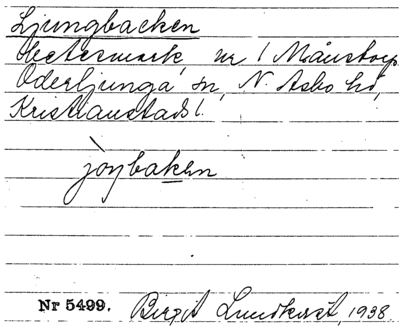 Ljungbacken
betesmark, nr 1 Månstorp
Oderljunga sn, N. Åsbo hd,
Kristianstads l.
jònbaken
Nr 5499. Birgit Lundkvist, 1938.